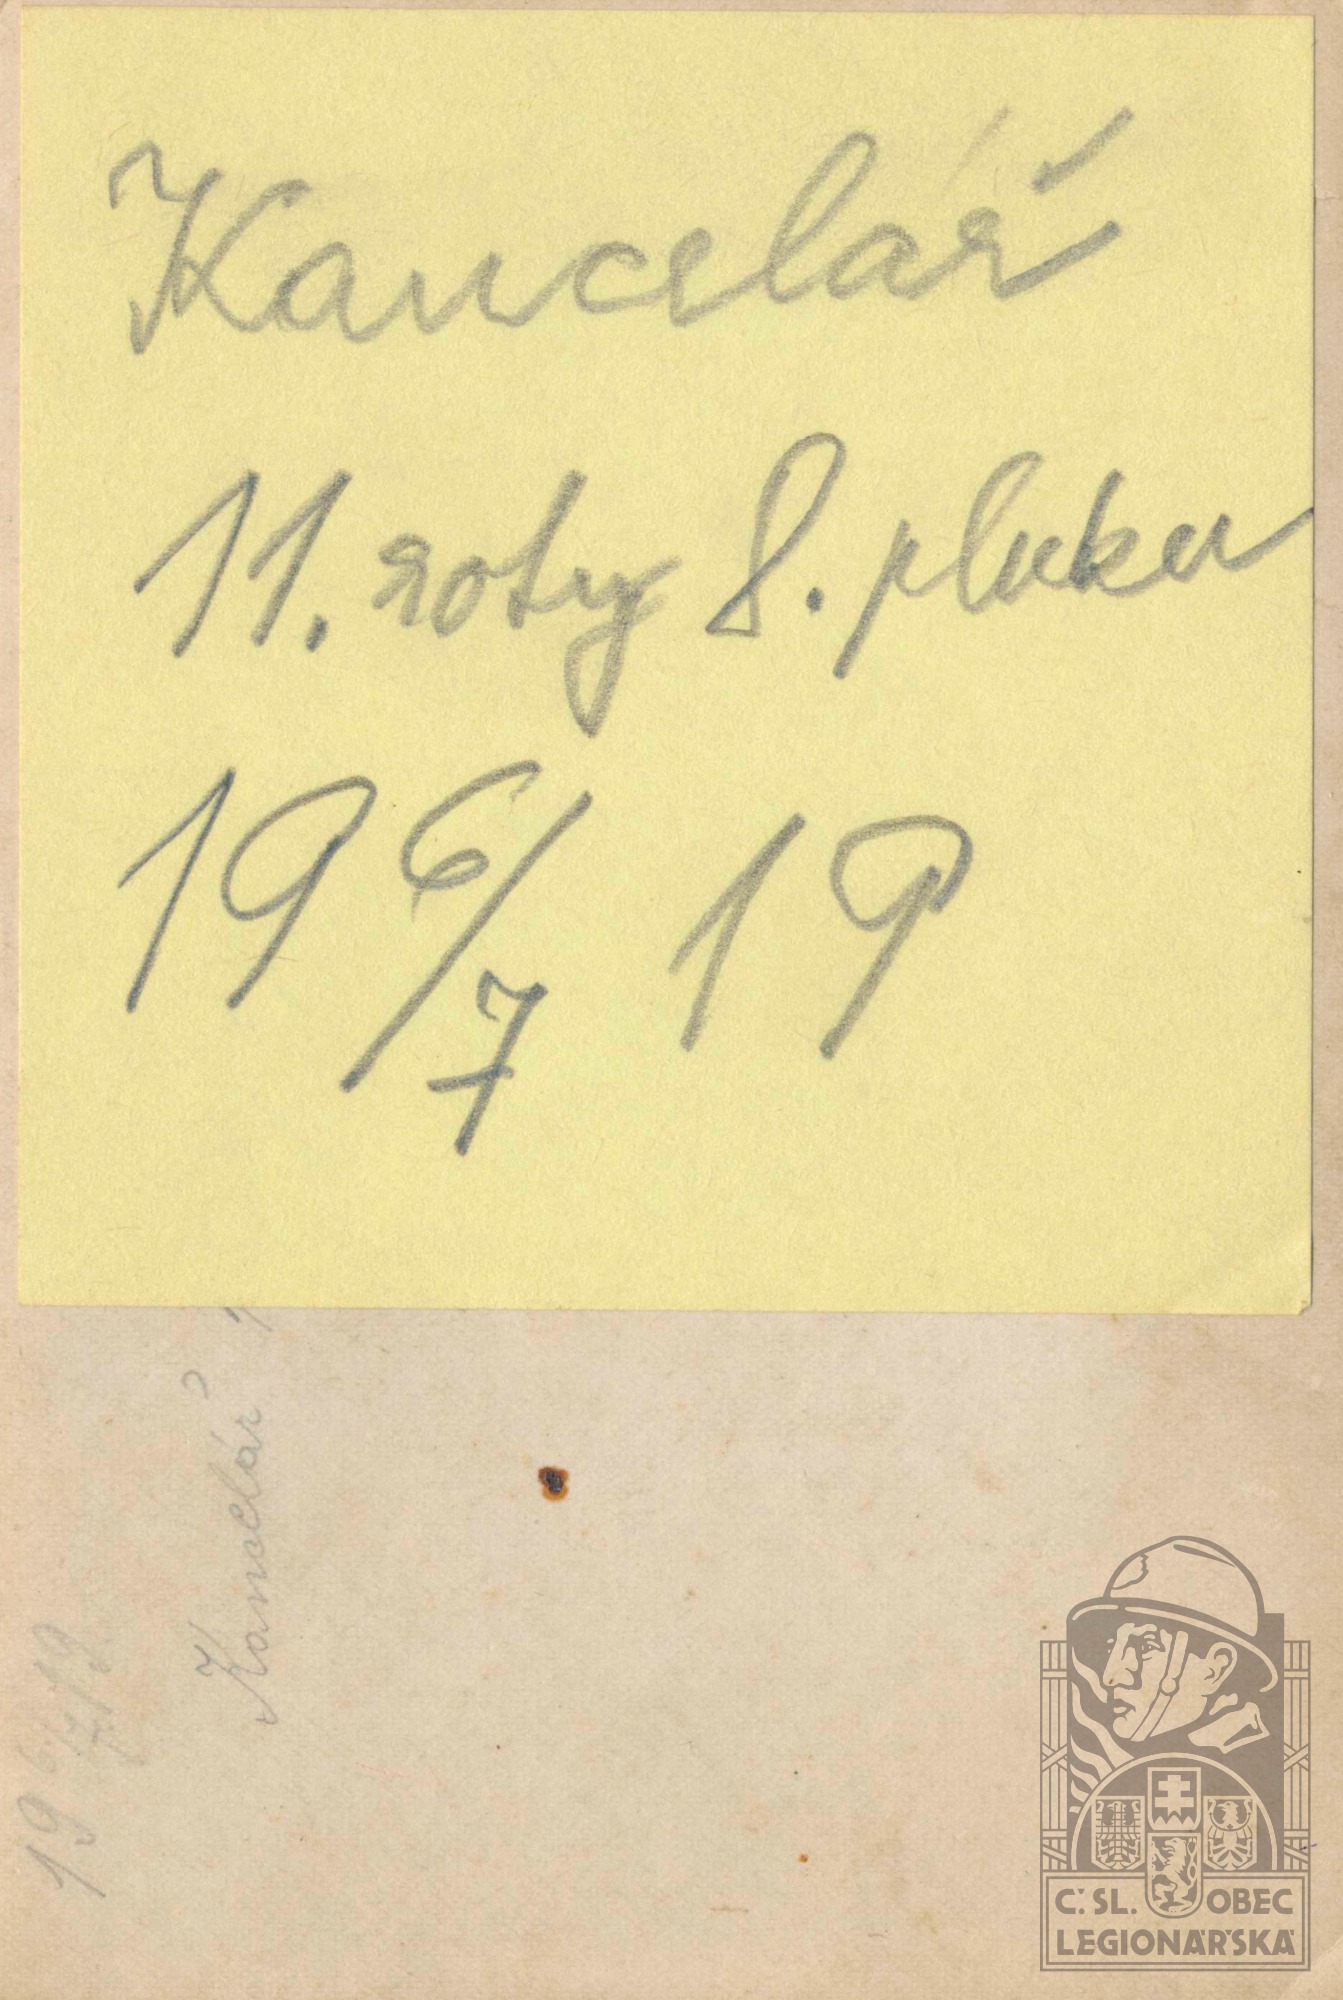 Kancelář
11. roty 8. pluku
19 6/7 19
Kancelář
19 6/7 19
Č. SL. OBEC
LEGIONÁŘSKÁ